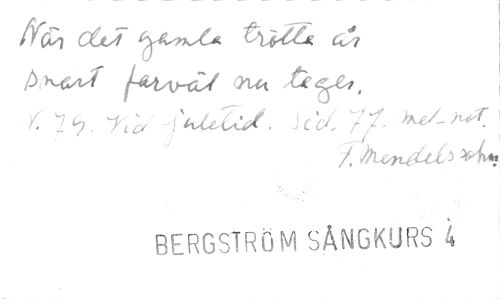 När det gamla trötta år
snart farväl nu tages.
V. 79. Vid juletid. Sid. 77. mel-not.
F. Mendelssohn.
BERGSTRÖM SÅNGKURS 4